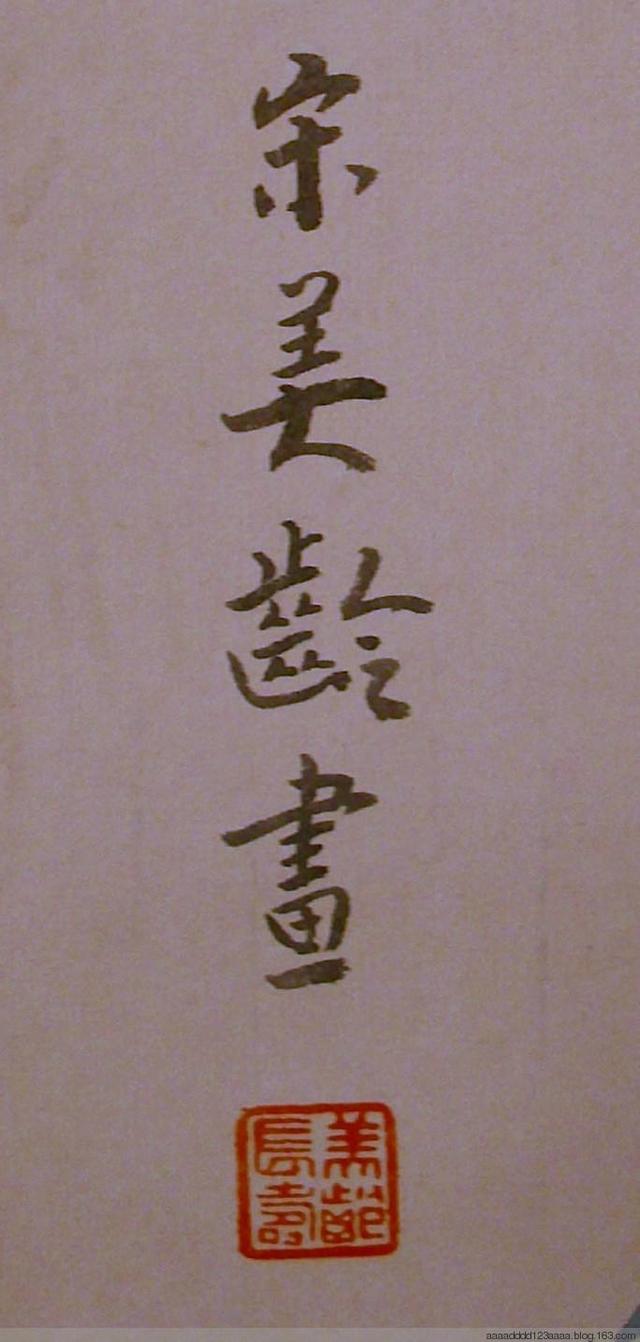 宋美齡畫
美齡
長壽
aaaadddd123aaaa.blog.163.com